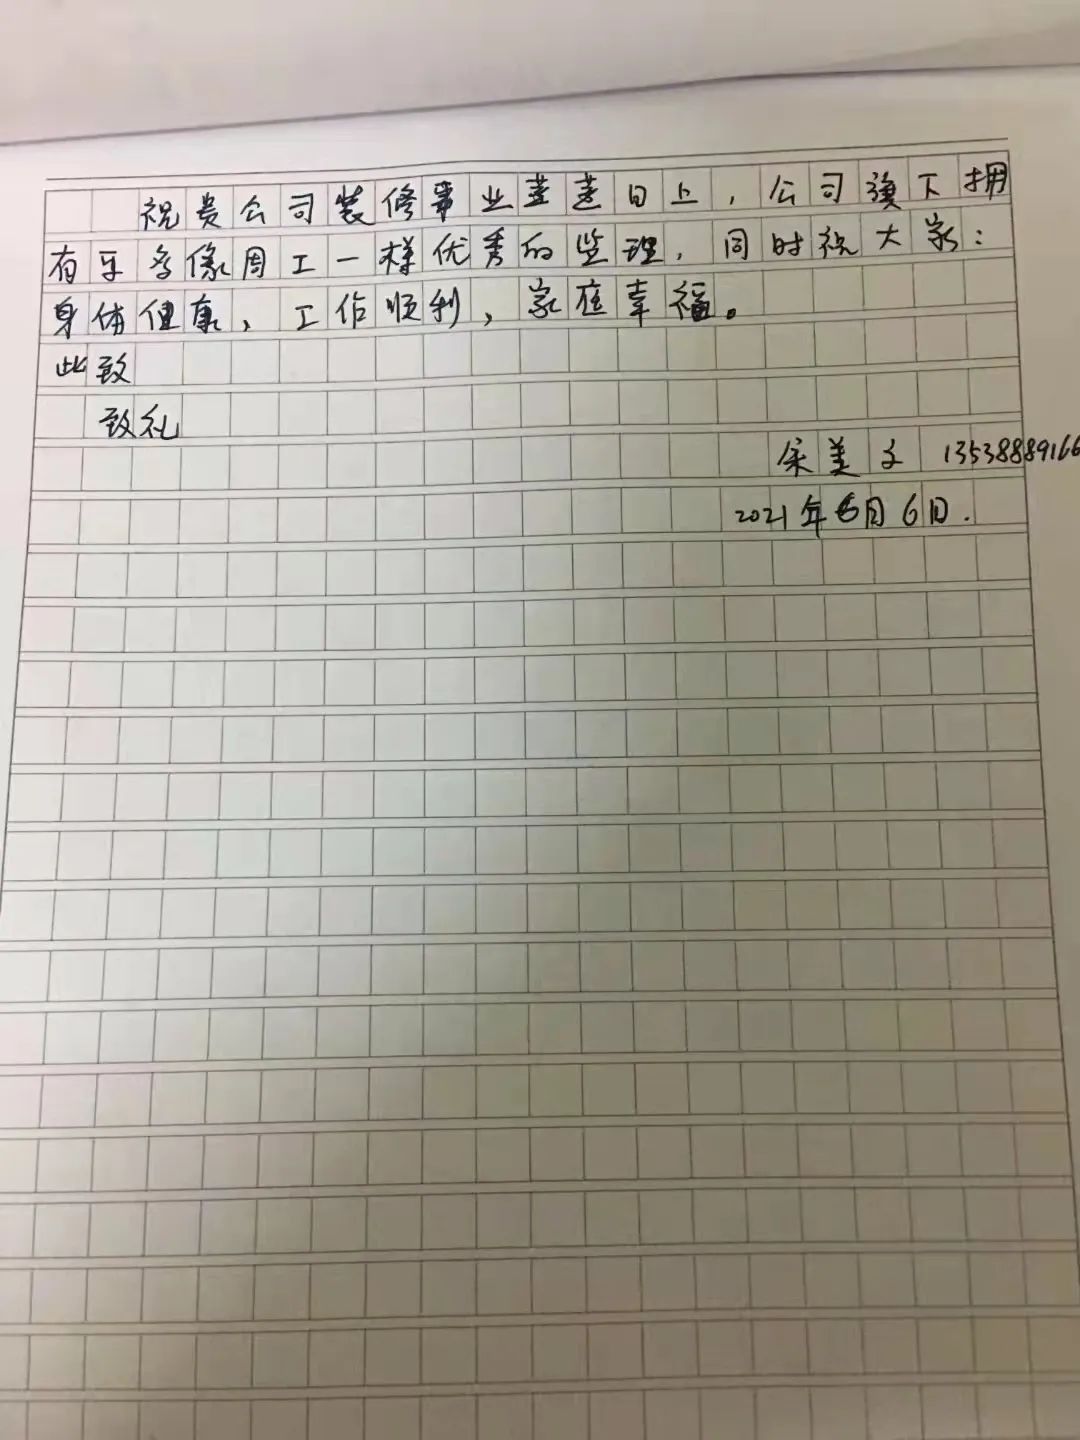 祝贵公司装修事业蒸蒸日上，公司旗下拥
有更多像周工一样优秀的监理，同时祝大家：
身体健康，工作顺利，家庭幸福。
此致
致礼
美 13538889166
2021年6月6日.